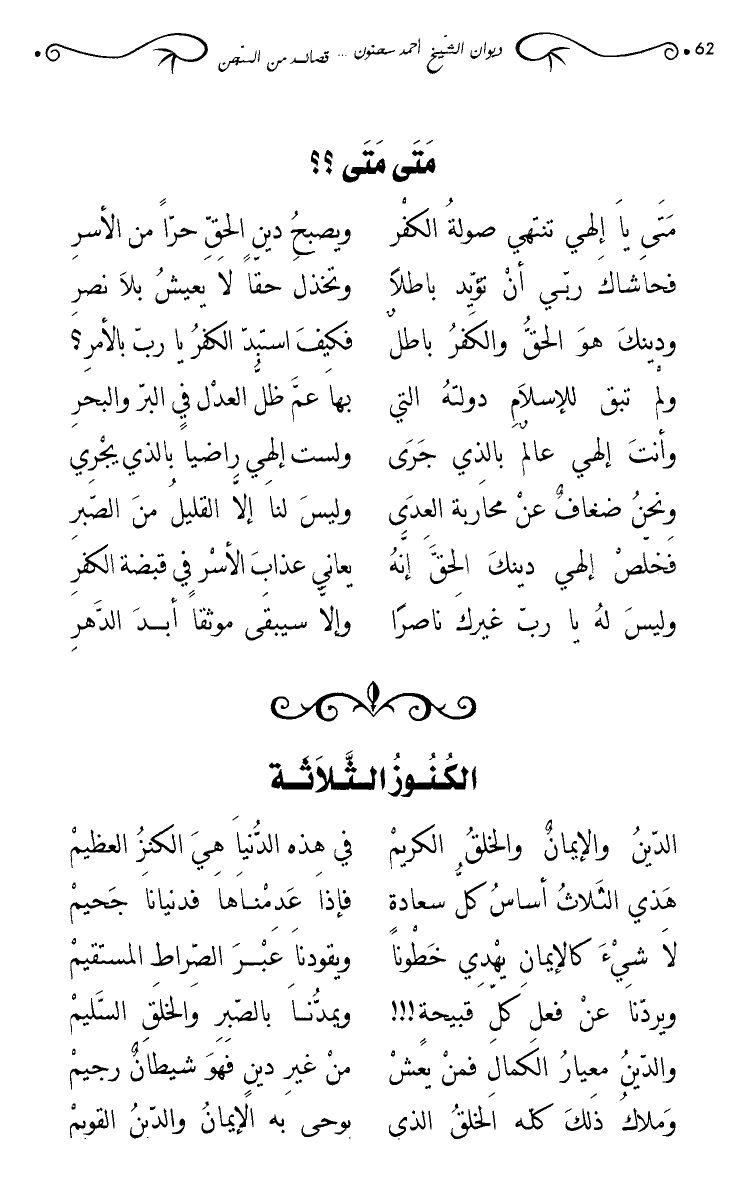 62 ديوان الشيخ أحمد سحنون ... قصائد من السجن
مَتَى مَتَى ؟؟
مَتَى يَا إِلهي تنتهي صولةُ الكفْر ويصبحُ دين الحقّ حرّاً من الأسرِ
فحاشاك ربّي أنْ تؤيّد باطلاً وتخذل حقّاً لا يعيشُ بلاَ نصرِ
ودينكَ هوَ الحقُّ والكفرُ باطلٌ فكيفَ استبدّ الكفرُ يا ربّ بالأمرِ؟
ولمْ تبق للإسلاَمِ دولتهُ التي بها عمَّ ظلُّ العدْل في البرّ والبحرِ
وأنتَ إلهي عالمٌ بالذِي جَرَى ولست إلهِي راضياً بالذي يجْرِي
ونحنُ ضغافٌ عنْ محاربة العِدَى وليسَ لنا إلاَّ القليلُ منَ الصّبرِ
فخلّصْ إلهي دينكَ الحقَّ إنّهُ يعاني عذابَ الأسْرِ في قبضة الكفرِ
وليسَ لهُ يا ربّ غيرك ناصرًا وإلاَّ سيبقى موثقاً أبـدَ الدَّهرِ
الكُنُـوزُ الـثَّـلاَثَـة
الدّينُ والإيمانُ والخلقُ الكريمْ في هذه الدُّنياَ هِيَ الكنزُ العظيمْ
هَذي الثَلاثُ أساسُ كلُّ سعادة فإذا عَدِمْناها فدنيانا جَحيمْ
لاَ شيْءَ كالإيمانِ يهْدِي خَطْونَا ويقودنا عَبْـرَ الصِّراطِ المستقيمْ
ويردّنا عنْ فعلِ كلّ قبيحةٍ!!! ويمدُّنـا بالصّبرِ والخلقِ السَّليمْ
والدّينُ معيارُ الكمالِ فمنْ يعشْ منْ غيرِ دينٍ فهوَ شيطانٌ رجيمْ
وَملاكُ ذلكَ كله الخلقُ الذي يوحى به الإيمانُ والدّينُ القويمْ